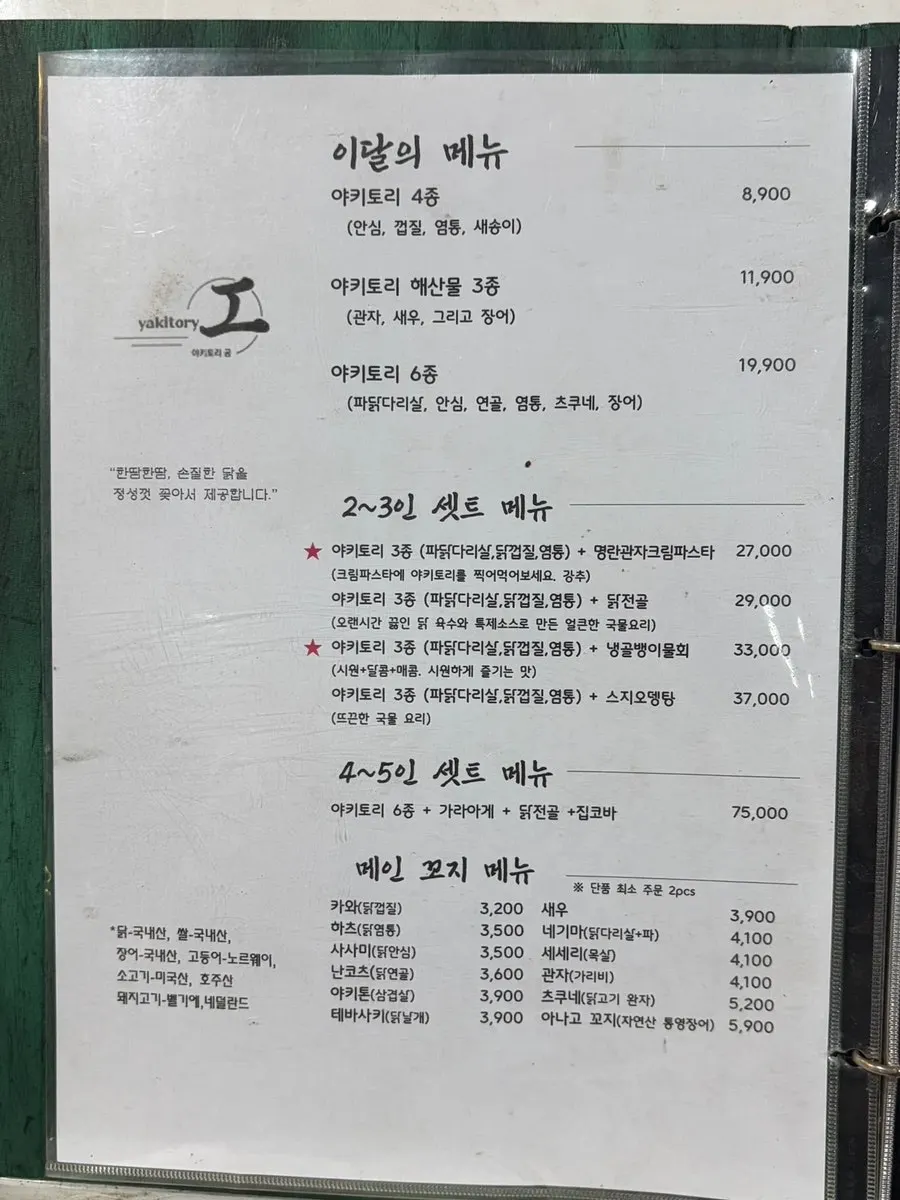 이달의 메뉴
야키토리 4종 8,900
(안심, 껍질, 염통, 새송이)
야키토리 해산물 3종 11,900
(관자, 새우, 그리고 장어)
야키토리 6종 19,900
(파닭다리살, 안심, 연골, 염통, 츠쿠네, 장어)
yakitory 工
야키토리 공
“한땀한땀, 손질한 닭을
정성껏 꽂아서 제공합니다.”
2~3인 셋트 메뉴
★ 야키토리 3종 (파닭다리살,닭껍질,염통) + 명란관자크림파스타 27,000
(크림파스타에 야키토리를 찍어먹어보세요. 강추)
야키토리 3종 (파닭다리살,닭껍질,염통) + 닭전골 29,000
(오랜시간 끓인 닭 육수와 특제소스로 만든 얼큰한 국물요리)
★ 야키토리 3종 (파닭다리살,닭껍질,염통) + 냉골뱅이물회 33,000
(시원+달콤+매콤. 시원하게 즐기는 맛)
야키토리 3종 (파닭다리살,닭껍질,염통) + 스지오뎅탕 37,000
(뜨끈한 국물 요리)
4~5인 셋트 메뉴
야키토리 6종 + 가라아게 + 닭전골 +집코바 75,000
메인 꼬지 메뉴
※ 단품 최소 주문 2pcs
카와(닭껍질) 3,200 새우 3,900
하츠(닭염통) 3,500 네기마(닭다리살+파) 4,100
사사미(닭안심) 3,500 세세리(목살) 4,100
난코츠(닭연골) 3,600 관자(가리비) 4,100
야키톤(삼겹살) 3,900 츠쿠네(닭고기 완자) 5,200
테바사키(닭날개) 3,900 아나고 꼬지(자연산 통영장어) 5,900
*닭-국내산, 쌀-국내산,
장어-국내산, 고등어-노르웨이,
소고기-미국산, 호주산
돼지고기-벨기에,네덜란드